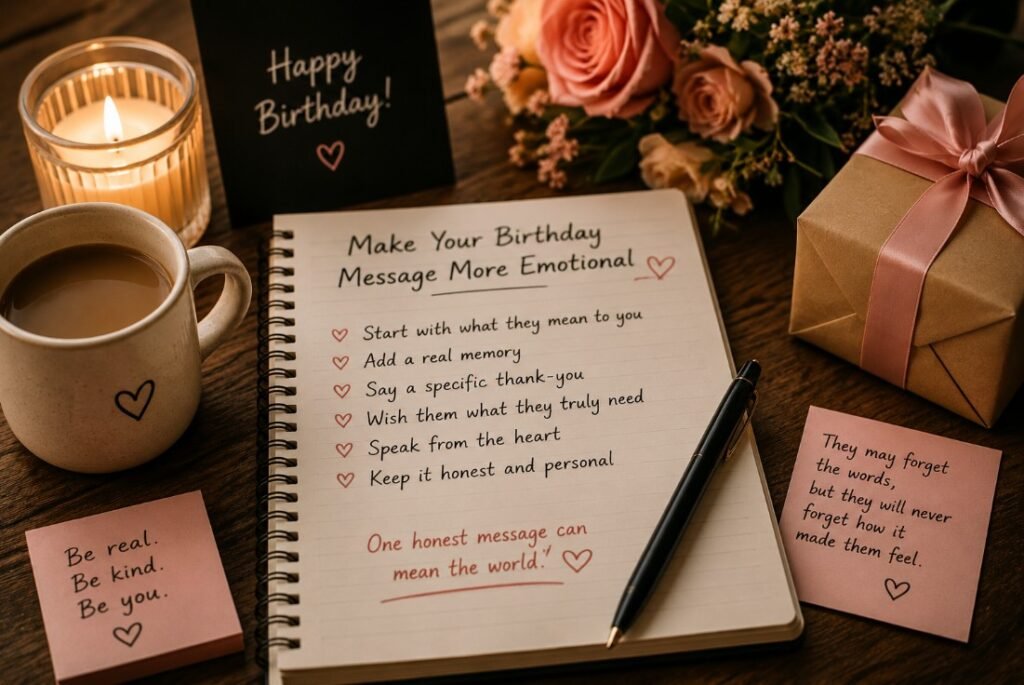 Happy
Birthday!
Make Your Birthday
Message More Emotional
Start with what they mean to you
Add a real memory
Say a specific thank-you
Wish them what they truly need
Speak from the heart
Keep it honest and personal
One honest message can
mean the world."
Be real.
Be kind.
Be you.
They may forget
the words,
but they will never
forget how it
made them feel.